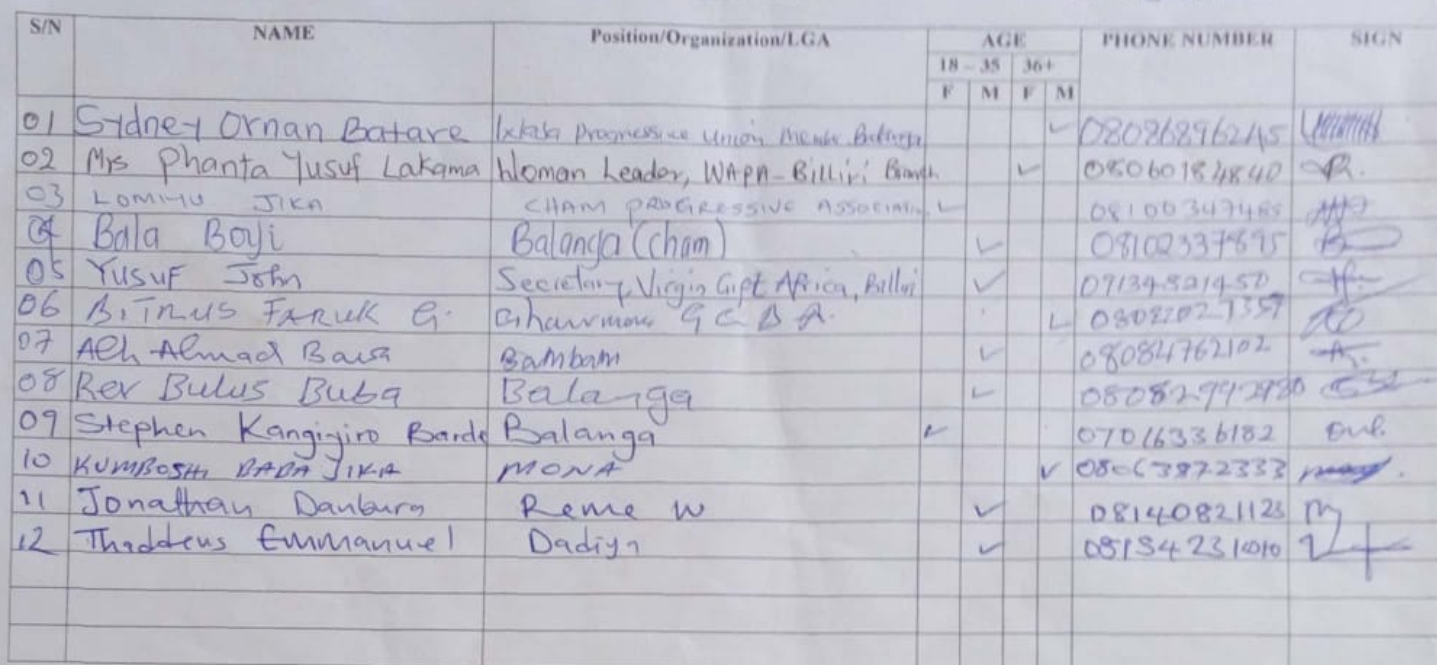 S/N NAME Position/Organization/LGA AGE PHONE NUMBER SIGN
18 - 35 36+
F M F M
01 Sydney Ornan Batare Progressive Union Member ✓ 08086896245
02 Mrs Phanta Yusuf Lakama Woman Leader, WAPA-Billiri Branch ✓ 08060184840
03 LOMIYU JIKA CHAM PROGRESSIVE ASSOCIATION ✓ 08100347485
04 Bala Boyi Balanga (Cham) ✓ 08102337895
05 Yusuf John Secretary, Virgin Gift Africa, Billiri ✓ 09134821450
06 BITRUS FARUK G. ✓
07 Alh Ahmad Bawa Bambam ✓ 08084762102
08 Rev Bulus Buba Balanga ✓
09 Stephen Kangigiro Barde Balanga ✓ 07016336182
10 KUMBOSHI DADA JIKA MONA ✓ 08063872333
11 Jonathan Danburg Reme W ✓ 08140821123
12 Thaddeus Emmanuel Dadiya ✓